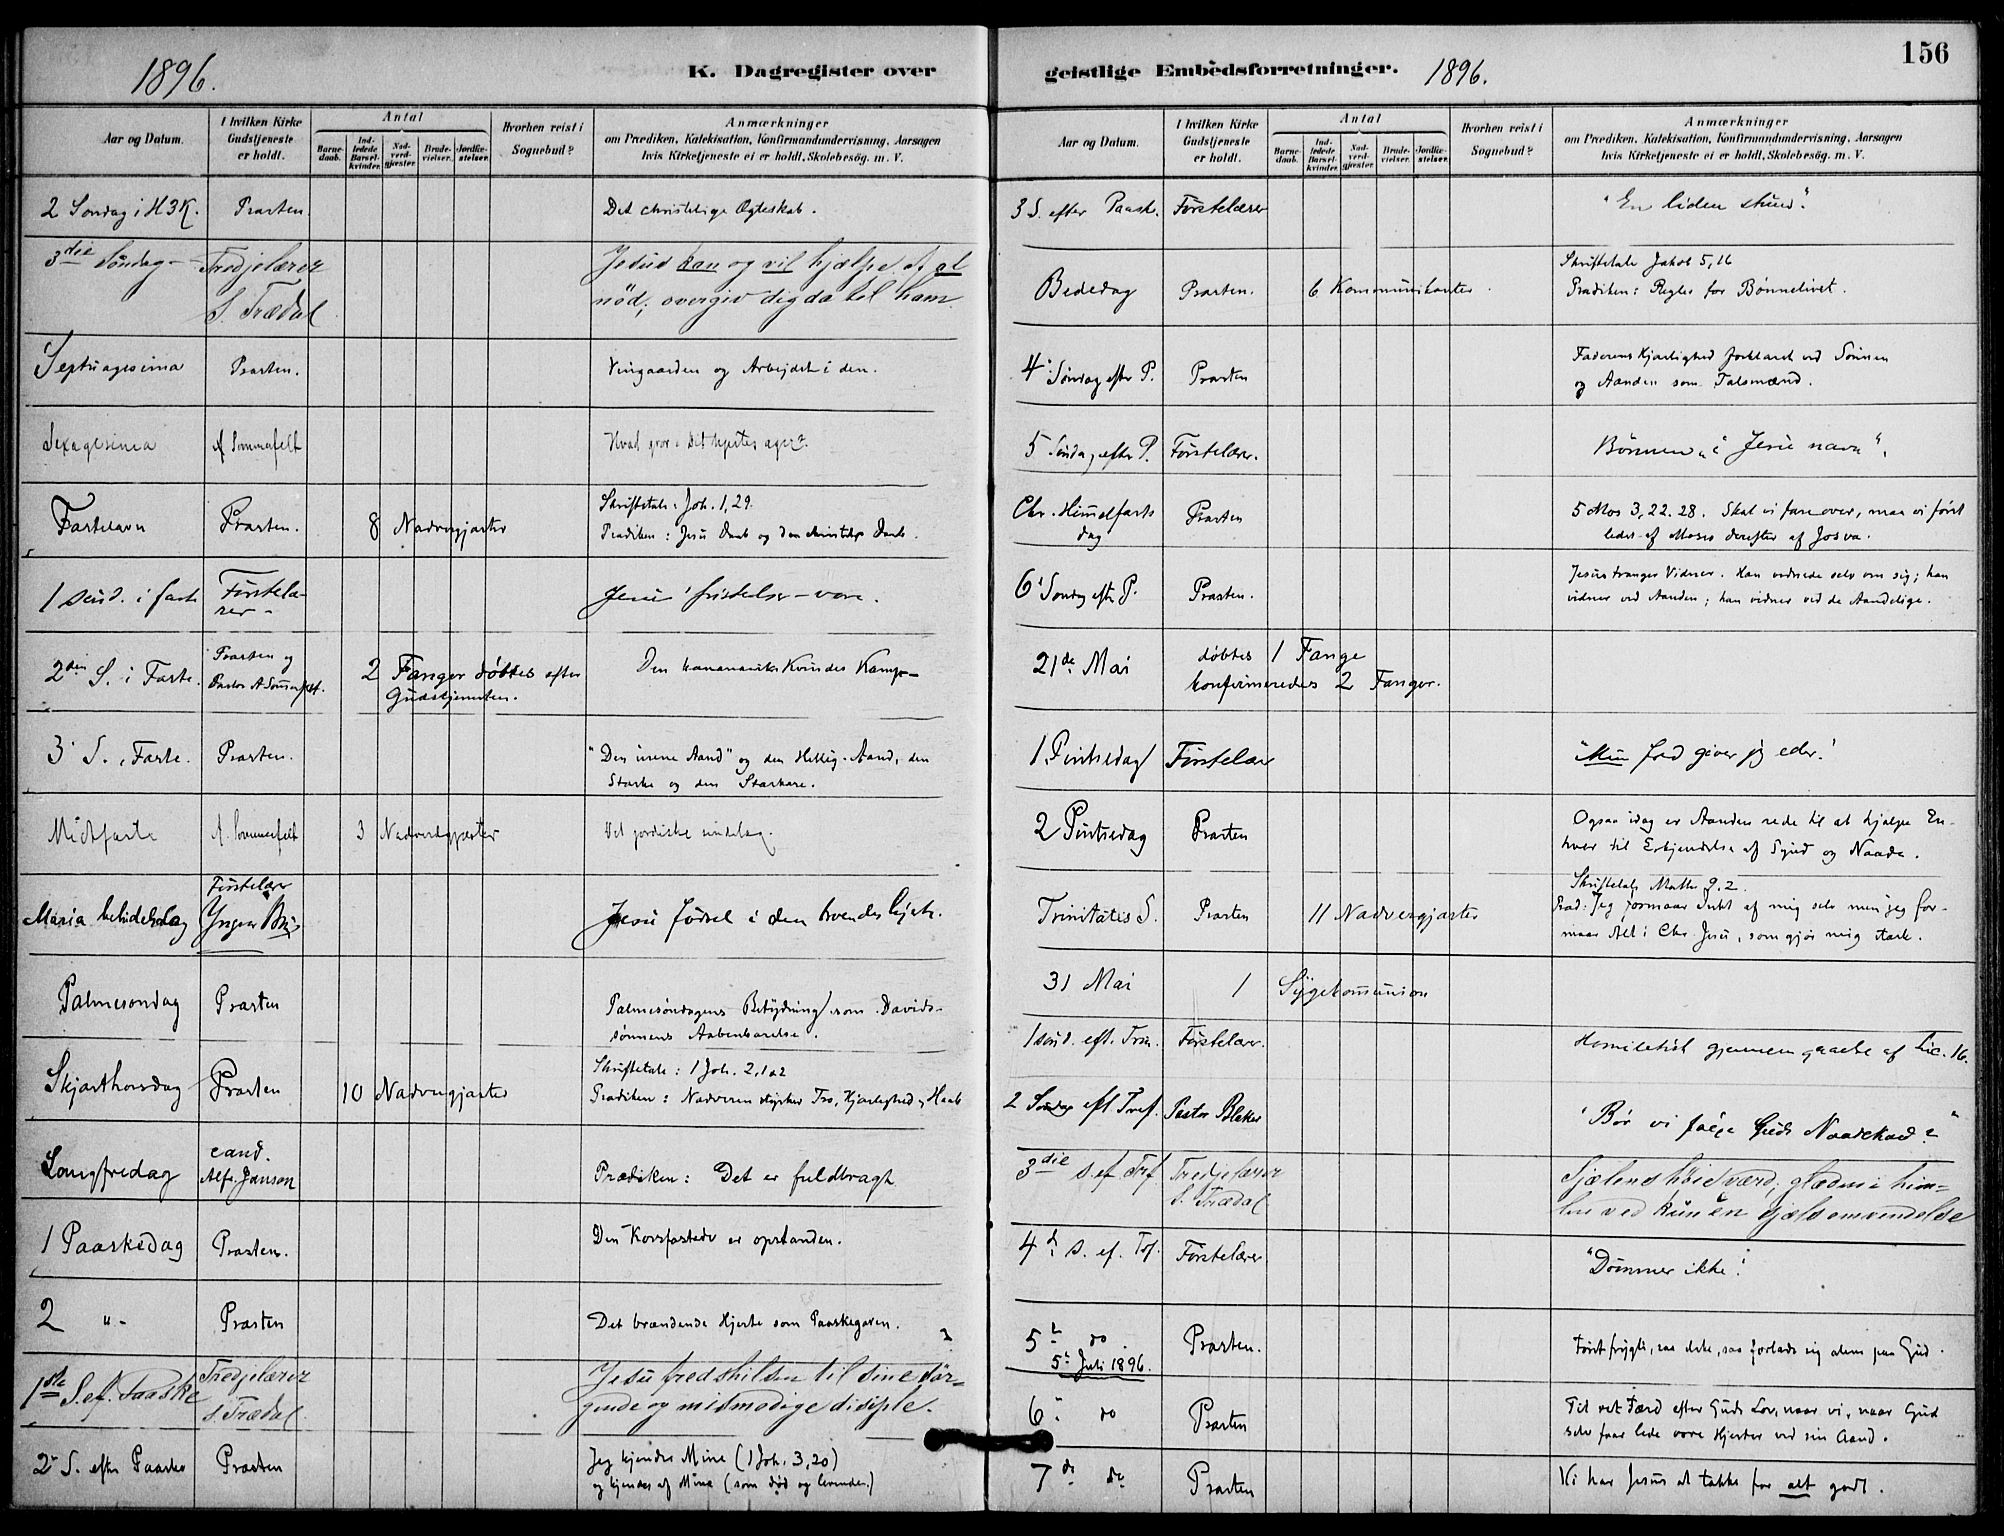 1896.
K. Dagregister over
Aar og Datum.
I hvilken Kirke Gudstjeneste er holdt.
Antal
Barnedaab.
Indledede Barselkvinder.
Nadverdgjæster.
Brudevielser.
Jordfæstelser.
Hvorhen reist i Sognebud?
Anmærkninger
om Prædiken, Katekisation, Konfirmandundervisning, Aarsagen
hvis Kirketjeneste ei er holdt, Skolebesøg. m. V.
2 Søndag i H3K. Præsten Det christelige Ægteskab.
3die Søndag - Tredjelærer Jesus kan og vil hjælpe af al
S. Trædal nöd; overgiv dig da til ham
Septuagesima Præsten. Vingaarden og Arbejdet i den.
Sexagesima A Sommerfelt Hvad gror i dit hjertes ager?
Fastelavn Præsten. 8 Nadvergjæster Skriftetale: Joh. 1,29.
Prædiken: Jesu Daab og den christelige Daab.
1 sønd. i faste Förstelærer - Jesu fristelser - vore.
2den S. i Faste. Præsten og Pastor A Sommerfelt. 2 Fanger døbtes efter Gudstjenesten. Den kananæiske Kvindes Kamp-
3' S. i Faste. Præsten. "Den urene Aand" og den Hellig-Aand, den
Stærke og den Stærkere.
Midfaste A. Sommerfelt 3 Nadverdgjæster Det jordiske sindelag.
Maria bebudelsdag Förstelærer Yngvar Brun Jesu fødsel i den troendes hjerte.
Palmesøndag Præsten Palmesøndagens Betydning som Davids-
sønnens Aabenbarelse.
Skjærthorsdag Præsten 10 Nadvergjæster Skriftetale: 1 Joh. 2,1 a 2
Prædiken: Nadveren styrker Tro, Kjærlighed og Haab
Langfredag cand. Alfr. Janson Prædiken: Det er fuldbragt
1 Paaskedag Præsten. Den Korsfæstede er opstanden.
2 " - Præsten Det brændende Hjerte som Paaskegaven.
1ste S. ef. Paaske Tredjelærer S. Trædal Jesu fredshilsen til sine sör-
gende og mismodige disiple.
2' S. efter Paaske Præsten Jeg kjender Mine (1 Joh. 3,20)
og kjendes af Mine (som død og levende.)
geistlige Embedsforretninger. 1896.
156
Aar og Datum.
I hvilken Kirke Gudstjeneste er holdt.
Antal
Barnedaab.
Indledede Barselkvinder.
Nadverdgjæster.
Brudevielser.
Jordfæstelser.
Hvorhen reist i Sognebud?
Anmærkninger
om Prædiken, Katekisation, Konfirmandundervisning, Aarsagen
hvis Kirketjeneste ei er holdt, Skolebesøg. m. V.
3 S. efter Paask. Förstelærer "En liden stund".
Bededag Præsten. 6 Kommunikanter. Skriftetale Jakob 5,16
Prædiken: Regler for Bønnelivet.
4' Søndag efter P. Præsten Faderens Kjærlighed forklaret ved Sønnen
og Aanden som Talsmænd.
5 Søndag efter P. Förstelærer. Bønnen "i Jesu navn".
Chr. Himmelfartsdag Præsten 5 Mos 3,22.28. Skal vi fare over, maa vi først
ledes af Moses derefter af Josva.
6' Søndag efter P. Præsten. Jesus trænger Vidner. Han vidnede selv om sig; han
vidner ved Aanden; han vidner ved de Aandelige.
21de Mai døbtes 1 Fange
konfirmeredes 2 Fanger.
1. Pintsedag Förstelær "Min fred giver jeg eder!
2 Pintsedag Præsten Ogsaa idag er Aanden rede til at hjælpe En-
hver til Erkjendelse af Synd og Naade.
Trinitatis S. Præsten 11 Nadvergjæster Skriftetale Matth 9.2.
Præd: Jeg formaar Intet af mig selv men jeg for-
maar Alt i Chr. Jesu, som gjør mig stærk.
31 Mai 1 Sygekommunion
1 sønd. eft. Trin. Förstelærer. Homiletisk gjennemgaaelse af Luc. 16.
2 Søndag eft. Tref. Pastor Blakar "Bør vi følge Guds Naadekald?"
3die S. ef. Tref Tredjelærer S. Trædal Sjælens höie værd; glæden i him-
len ved kun én sjæls omvendelse
4d S. ef. Tref. Förstelærer "Dömmer ikke!
5t do. 5t Juli 1896. Præsten. Først frygte, saa elske, saa forlade sig alene paa Gud.
6' do Præsten Til ret Færd efter Guds Lov, naar vi, naar Gud
selv faar lede vore Hjerter ved sin Aand.
7de do Præsten Vi har Jesus at takke for alt godt.